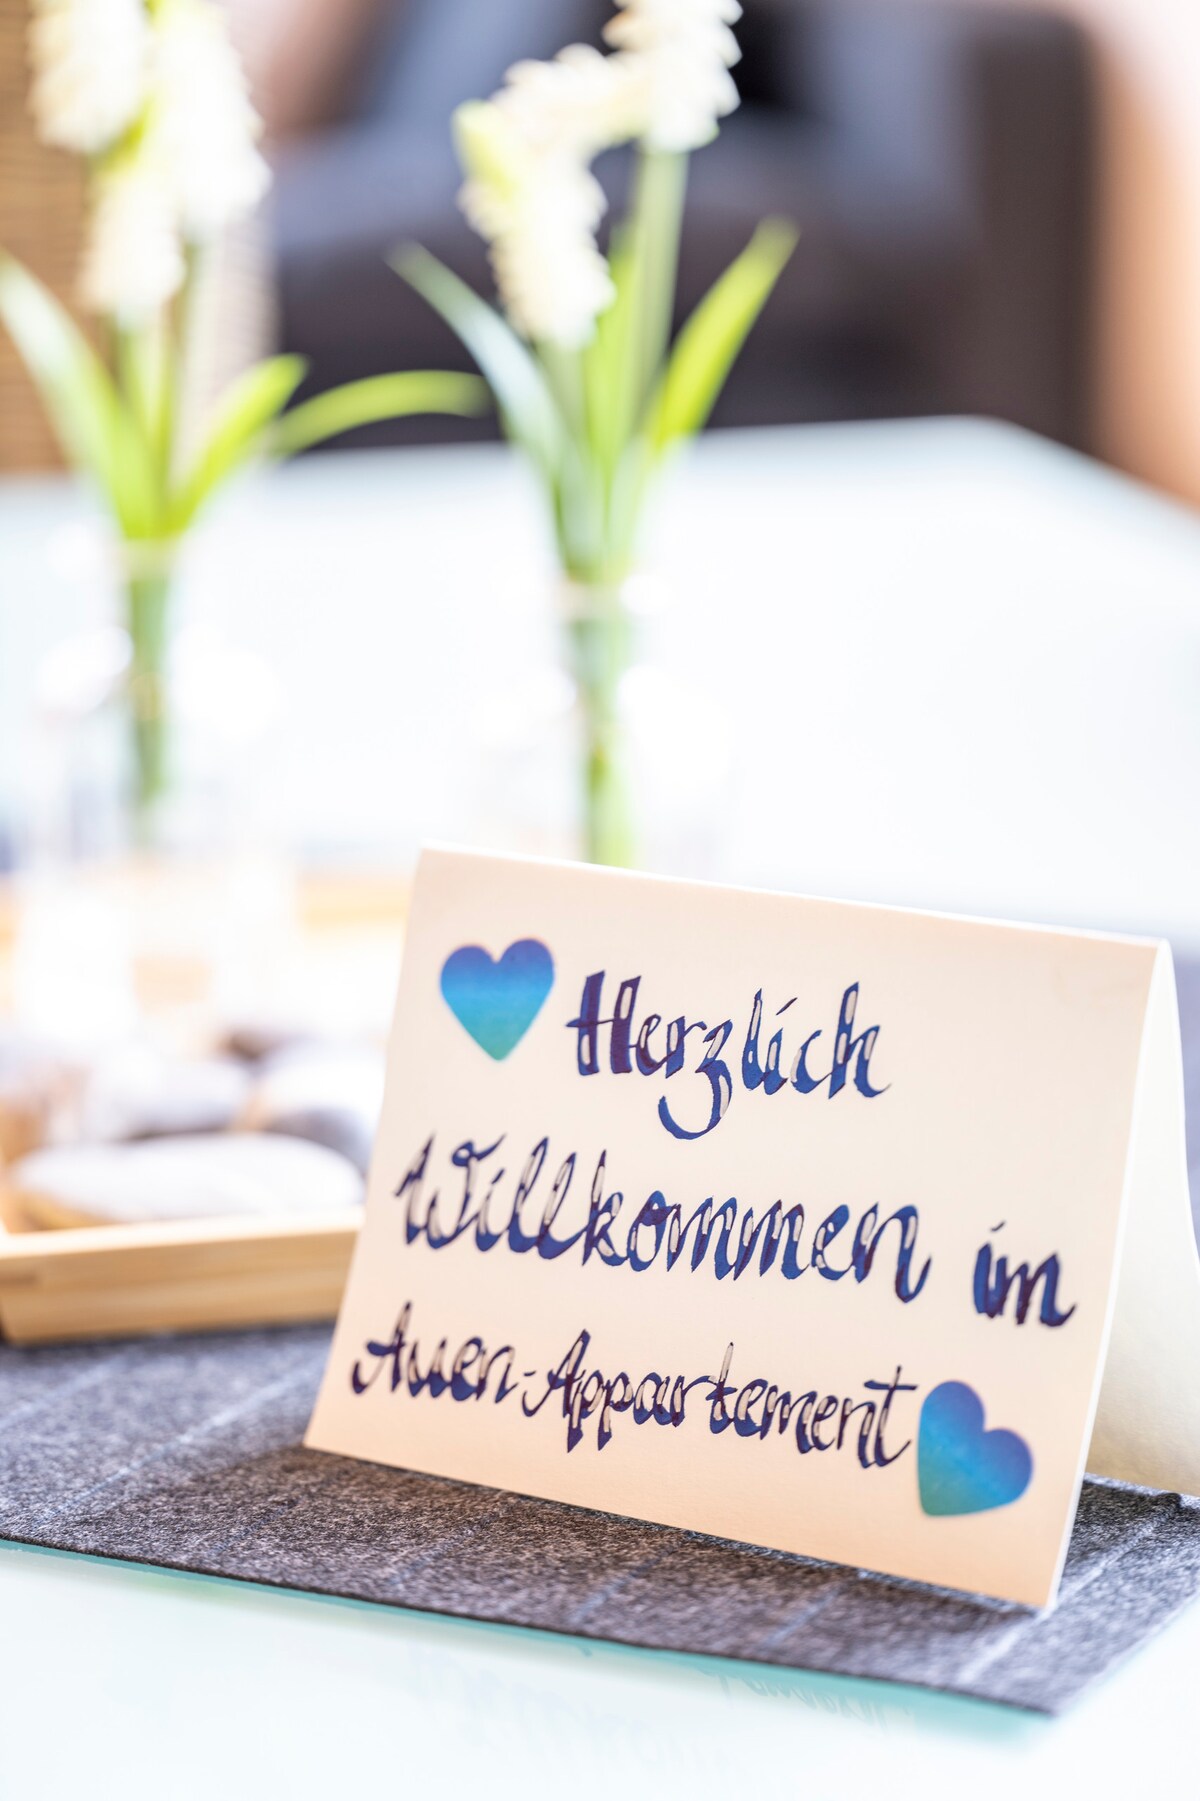 Herzlich
Willkommen im
Assen-Appartement